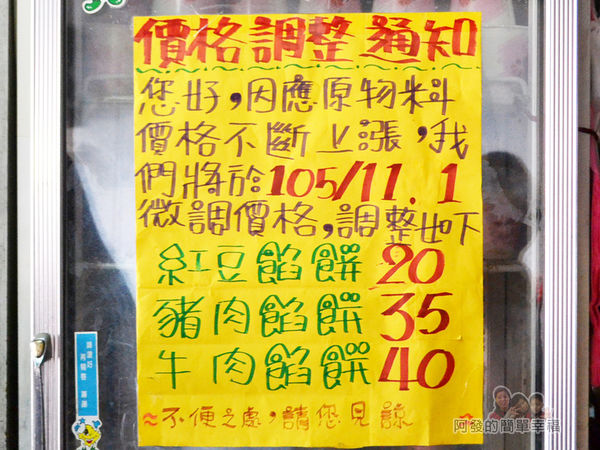 價格調整通知
您好，因應原物料
價格不斷上漲，我
們將於105/11.1
微調價格，調整如下
紅豆餡餅20
豬肉餡餅35
牛肉餡餅40
~不便之處，請您見諒~
阿發的簡單幸福